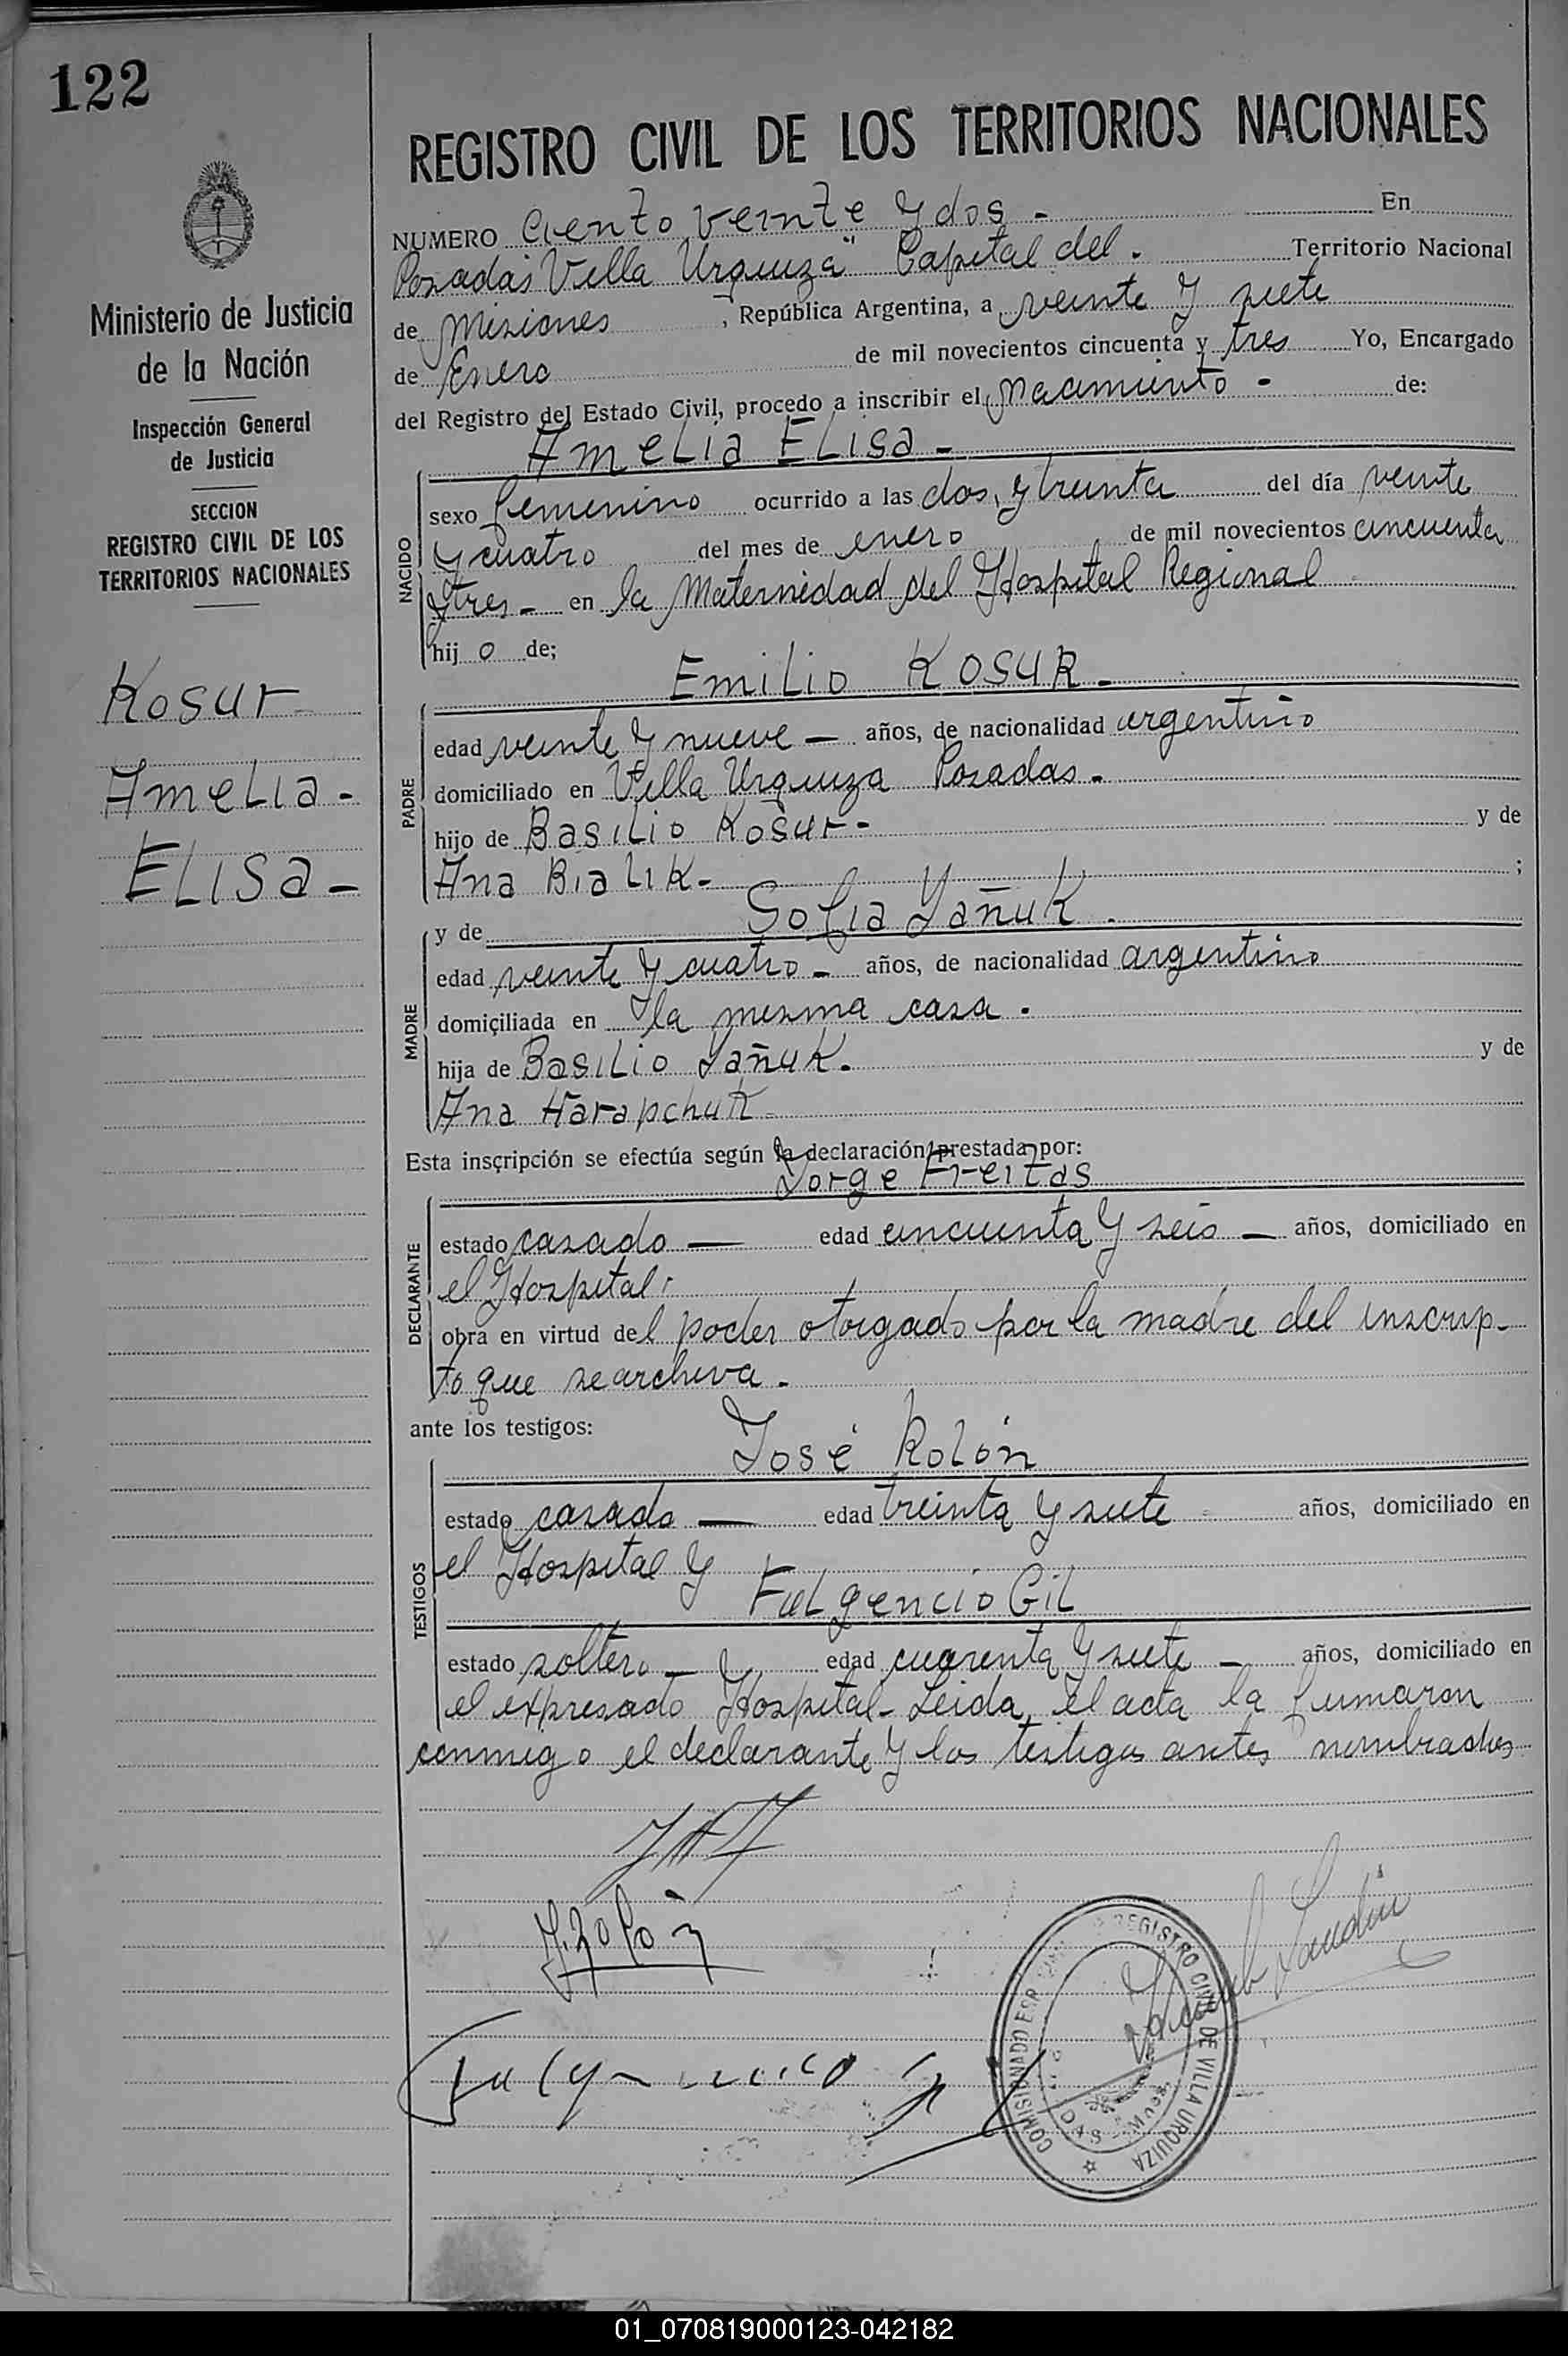 122
Ministerio de Justicia
de la Nación
Inspección General
de Justicia
SECCION
REGISTRO CIVIL DE LOS
TERRITORIOS NACIONALES
Kosur
Amelia -
Elisa -
REGISTRO CIVIL DE LOS TERRITORIOS NACIONALES
NUMERO Ciento veinte y dos - En
Posadas "Villa Urquiza" Capital del . Territorio Nacional
de Misiones , República Argentina, a veinte y siete
de Enero de mil novecientos cincuenta y tres Yo, Encargado
del Registro del Estado Civil, procedo a inscribir el nacimiento - de:
Amelia Elisa -
NACIDO
sexo femenino ocurrido a las dos, y treinta del día veinte
y cuatro del mes de enero de mil novecientos cincuenta
y tres - en la Maternidad del Hospital Regional
hij o de;
Emilio Kosur -
PADRE
edad veinte y nueve - años, de nacionalidad argentino
domiciliado en Villa Urquiza Posadas -
hijo de Basilio Kosur - y de
Ana Bialik - ;
y de Sofia Yañuk .
MADRE
edad veinte y cuatro - años, de nacionalidad argentino
domiciliada en la mesma casa .
hija de Basilio Yañuk . y de
Ana Harapchuk -
Esta inscripción se efectúa según la declaración prestada por:
Jorge Freitas
DECLARANTE
estado casado - edad cincuenta y seis - años, domiciliado en
el Hospital :
obra en virtud del poder otorgado por la madre del inscrip-
to que se archiva -
ante los testigos:
José Rolón
TESTIGOS
estado casado - edad treinta y siete años, domiciliado en
el Hospital y
Fulgencio Gil
estado soltero - edad cuarenta y siete - años, domiciliado en
el expresado Hospital - Leida, el acta la firmaron
conmigo el declarante y los testigos antes nombrados
J. Rolón
Fulgencio Gil
REGISTRO CIVIL DE VILLA URQUIZA
COMISIONADO ESP
DAS - Mnes.
01_070819000123-042182